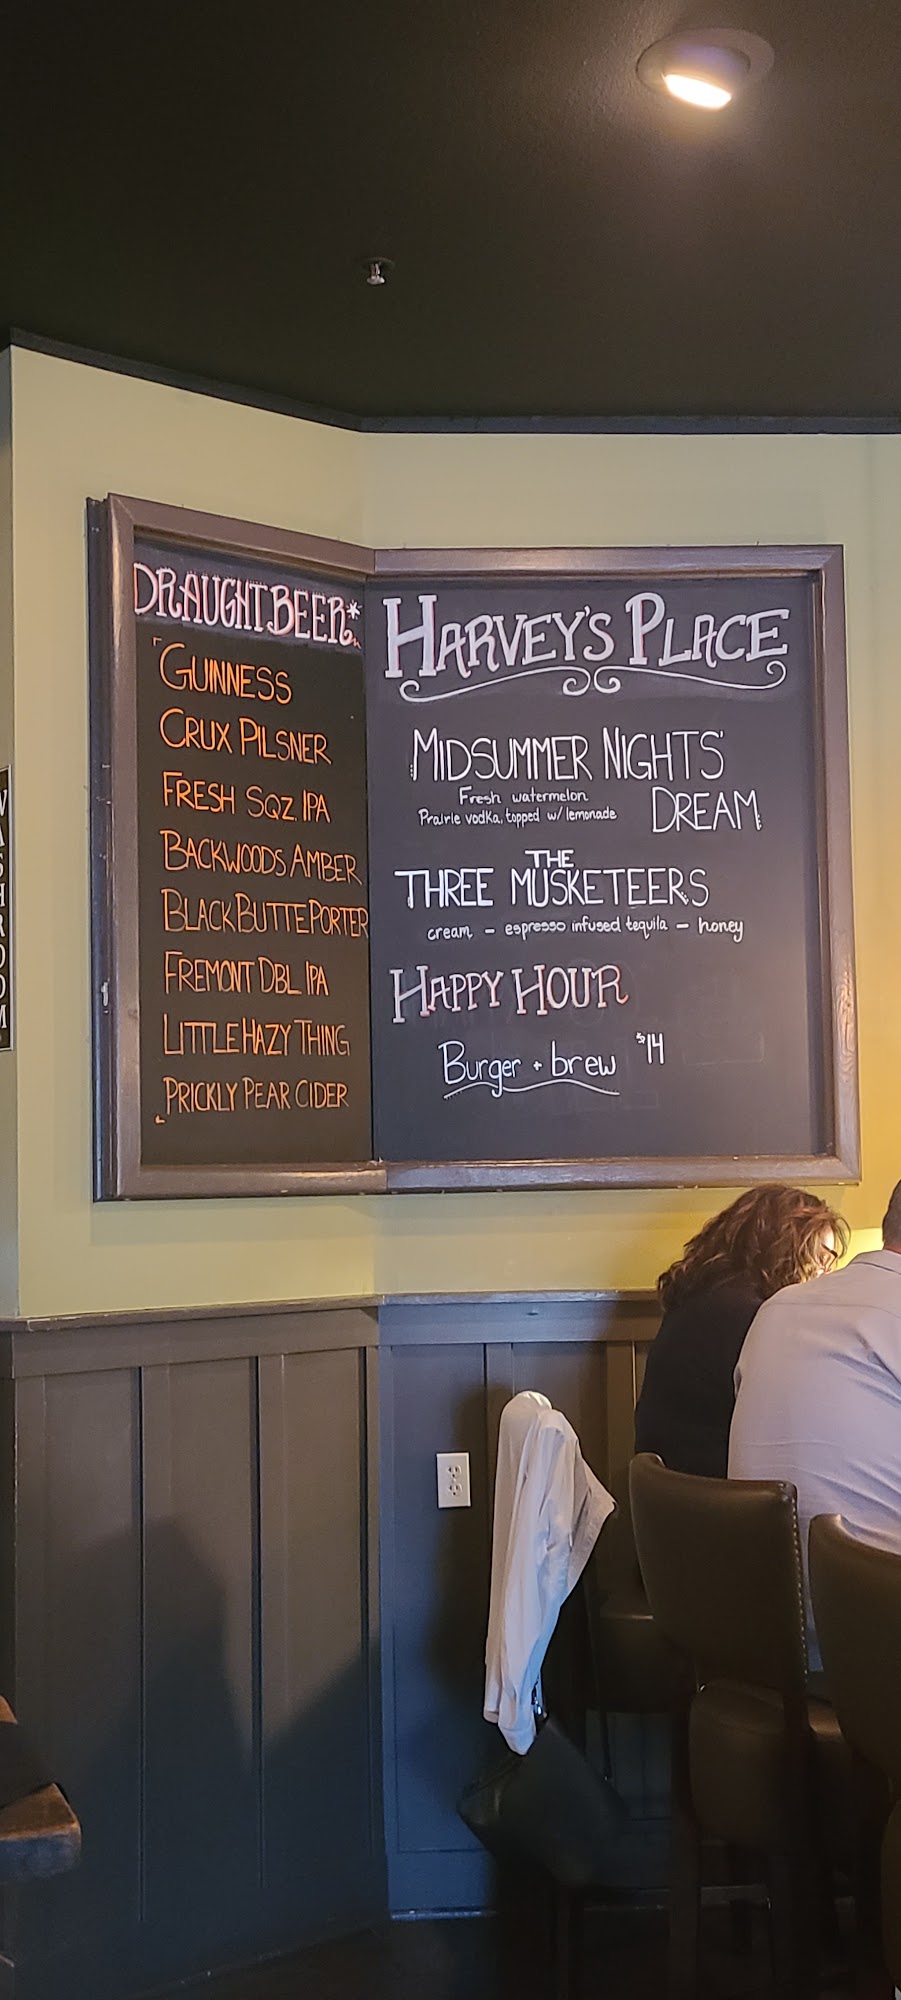 DRAUGHT BEER*
GUINNESS
CRUX PILSNER
FRESH SQZ. IPA
BACKWOODS AMBER
BLACK BUTTE PORTER
FREMONT DBL IPA
LITTLE HAZY THING
PRICKLY PEAR CIDER
HARVEY'S PLACE
MIDSUMMER NIGHTS'
DREAM
Fresh watermelon
Prairie vodka, topped w/ lemonade
THE
THREE MUSKETEERS
cream - espresso infused tequila - honey
HAPPY HOUR
Burger + brew $14
WASHROOM